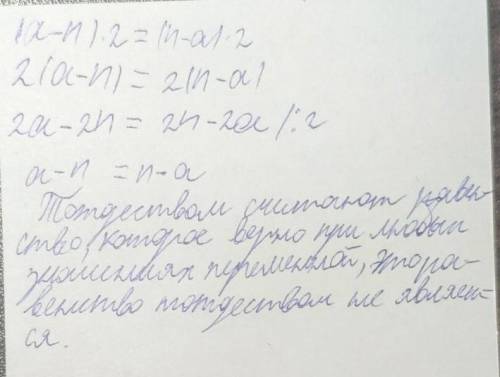 (a-n)·2=(n-a)·2
2(a-n)=2(n-a)
2a-2n=2n-2a |:2
a-n=n-a
Тождеством считают равен-
ство, которое верно при любых
значениях переменной, это ра-
венство тождеством не являет-
ся.